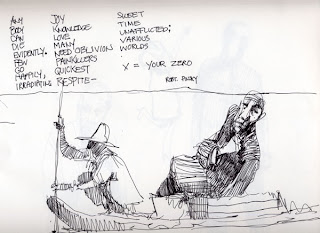 ANY
BODY
CAN
DIE
EVIDENTLY.
FEW
GO
HAPPILY,
IRRADIATING
JOY
KNOWLEDGE
LOVE
MANY
NEED OBLIVION
PAINKILLERS
QUICKEST
RESPITE—
SWEET
TIME
UNAFFLICTED;
VARIOUS
WORLDS
X = YOUR ZERO
ROBT. PINSKY